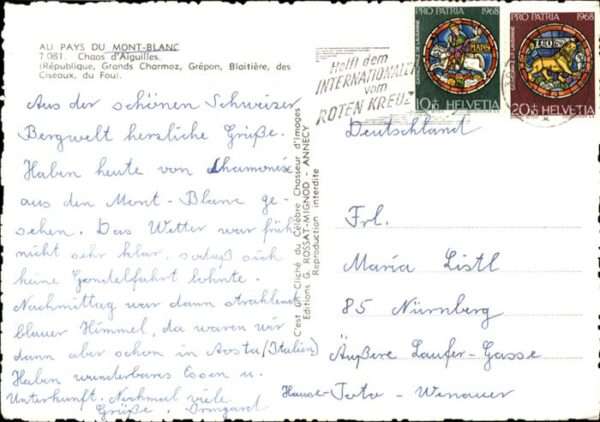 AU PAYS DU MONT-BLANC
7.081. Chaos d'Aiguilles.
(République, Grands Charmoz, Grépon, Blaitière, des
Ciseaux, du Fou).
Aus der schönen Schweizer
Bergwelt herzliche Grüße.
Haben heute von Chamonix
aus den Mont-Blanc ge-
sehen. Das Wetter war früh
nicht sehr klar, sodaß sich
keine Gondelfahrt lohnte.
Nachmittag war dann strahlend
blauer Himmel, da waren wir
dann aber schon in Aosta (Italien)
Haben wunderbares Essen u.
Unterkunft. Nochmal viele
Grüße. Irmgard
C'est un Cliché du Célèbre Chasseur d'Images
Editions G. ROSSAT-MIGNOD - ANNECY
Reproduction interdite
Helft dem
INTERNATIONALEN
vom
ROTEN KREUZ
PRO PATRIA 1968
10+10 HELVETIA
PRO PATRIA 1968
LEO
20+ HELVETIA
Deutschland
Frl.
Maria Listl
85 Nürnberg
Äußere Laufer-Gasse
Foto-